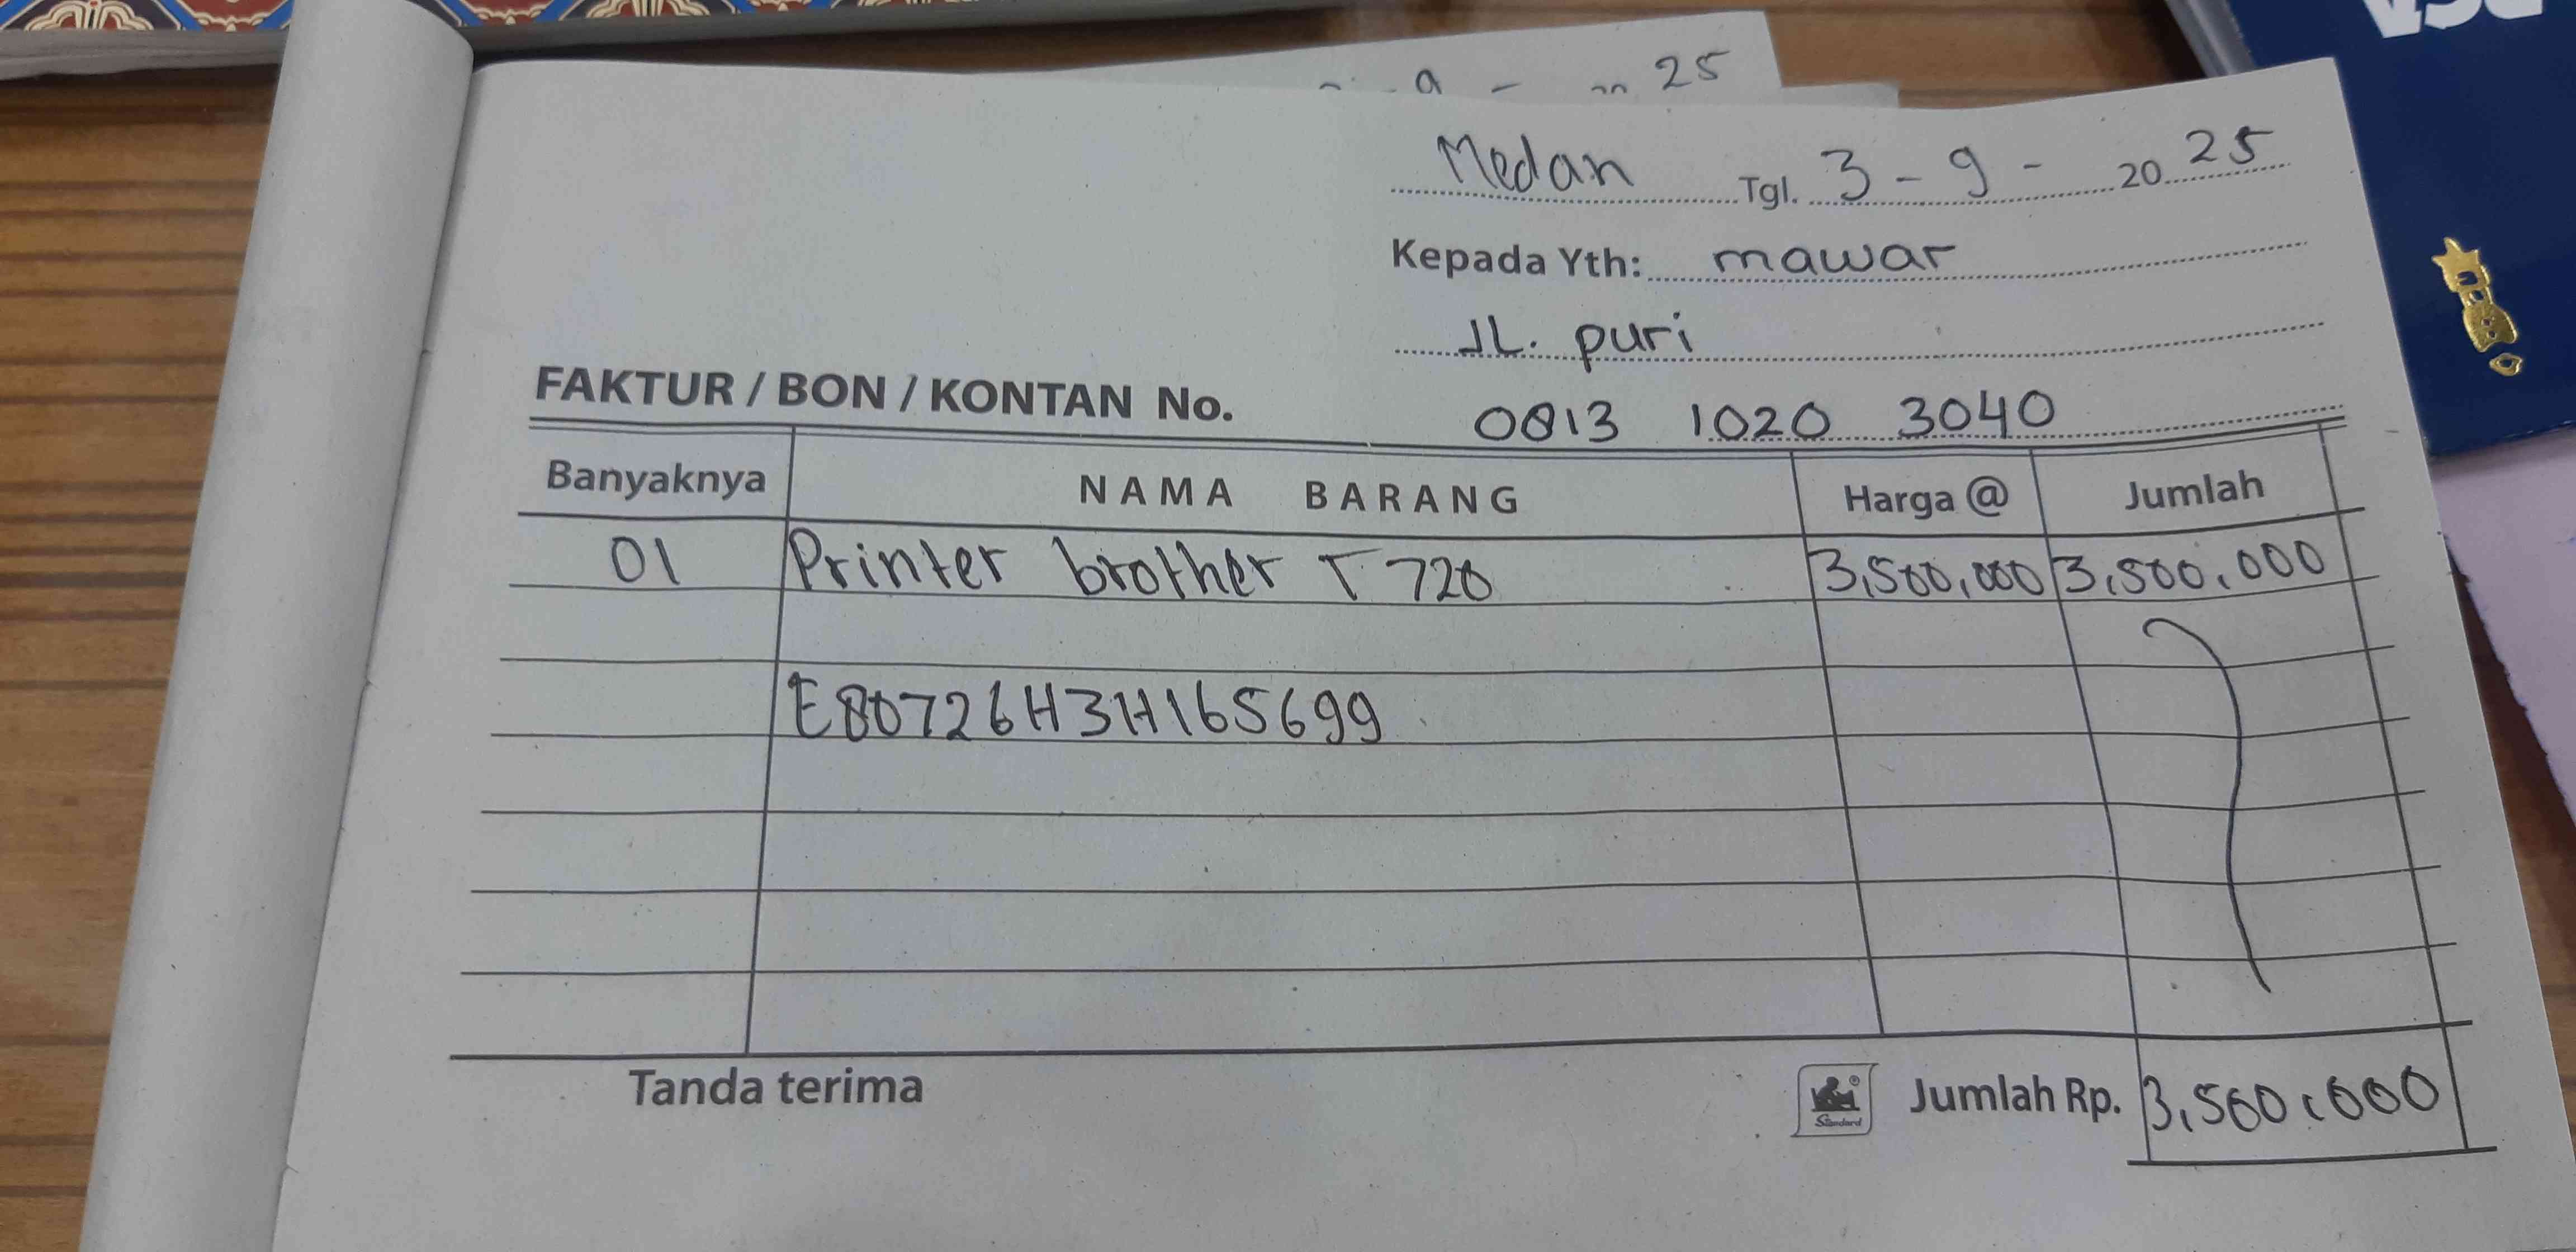 25
Medan Tgl. 3 - 9 - 20 25
Kepada Yth: mawar
JL. puri
FAKTUR / BON / KONTAN No.
0813 1020 3040
Banyaknya NAMA BARANG Harga @ Jumlah
01 Printer brother T 720 3,500,000 3,500,000
E80726H3H165699
Tanda terima Standard Jumlah Rp. 3,500,000